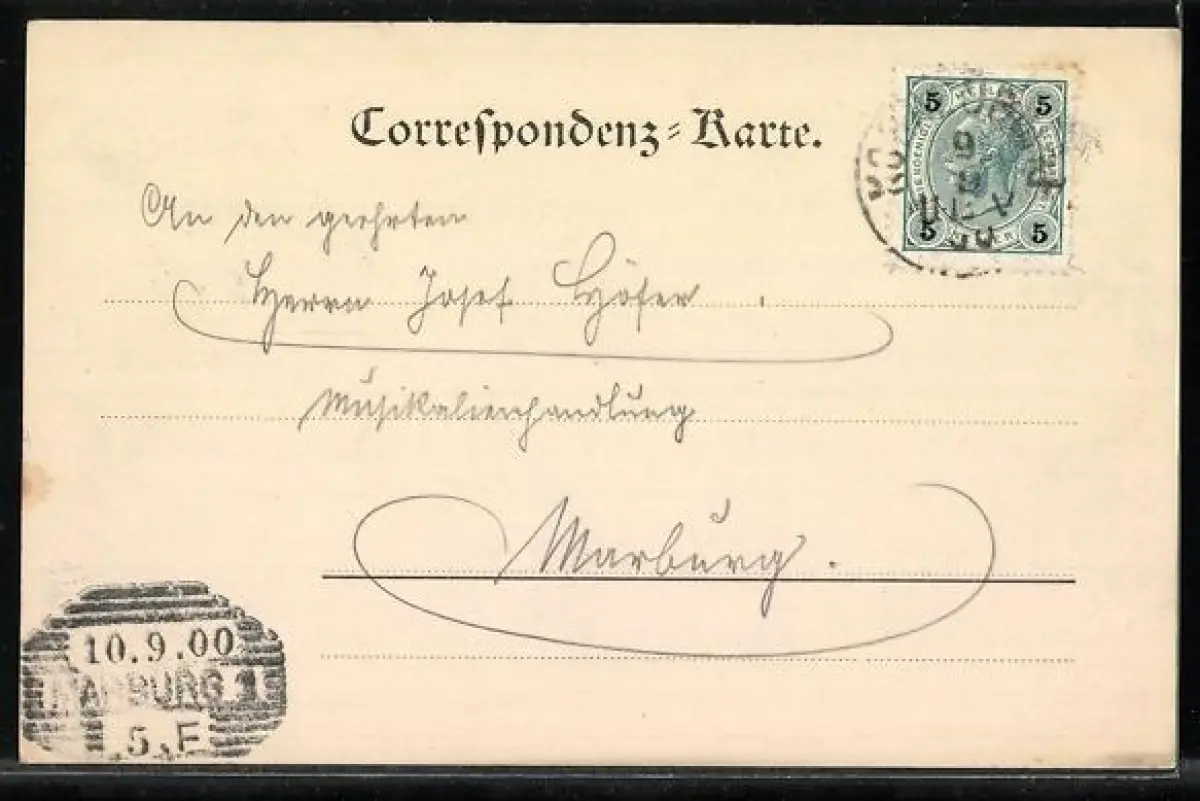 Correspondenz-Karte.
5 5
5 5
An den geehrten
Herrn Josef Höfer.
Musikalienhandlung
Marburg.
10.9.00
MARBURG 1
5.F